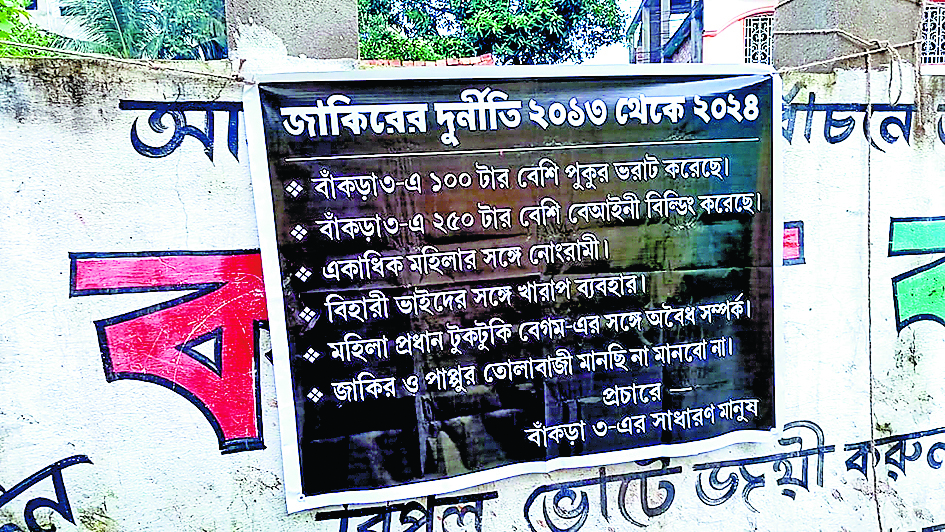 জাকিরের দুর্নীতি ২০১৩ থেকে ২০২৪
❖ বাঁকড়া ৩-এ ১০০ টার বেশি পুকুর ভরাট করেছে।
❖ বাঁকড়া ৩-এ ২৫০ টার বেশি বেআইনী বিল্ডিং করেছে।
❖ একাধিক মহিলার সঙ্গে নোংরামী।
❖ বিহারী ভাইদের সঙ্গে খারাপ ব্যবহার।
❖ মহিলা প্রধান টুকটুকি বেগম-এর সঙ্গে অবৈধ সম্পর্ক।
❖ জাকির ও পাপ্পুর তোলাবাজী মানছি না মানবো না।
প্রচারে —
বাঁকড়া ৩-এর সাধারণ মানুষ
বিপুল ভোটে জয়ী করুন